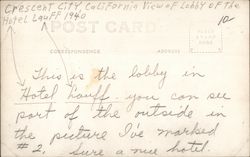 Crescent City, California View of Lobby of the
Hotel Lauff 1940
10-
POST CARD
CORRESPONDENCE
ADDRESS
PLACE
STAMP
HERE
This is the lobby in
Hotel Lauff. you can see
part of the outside in
the picture I've marked
# 2. Sure a nice hotel.